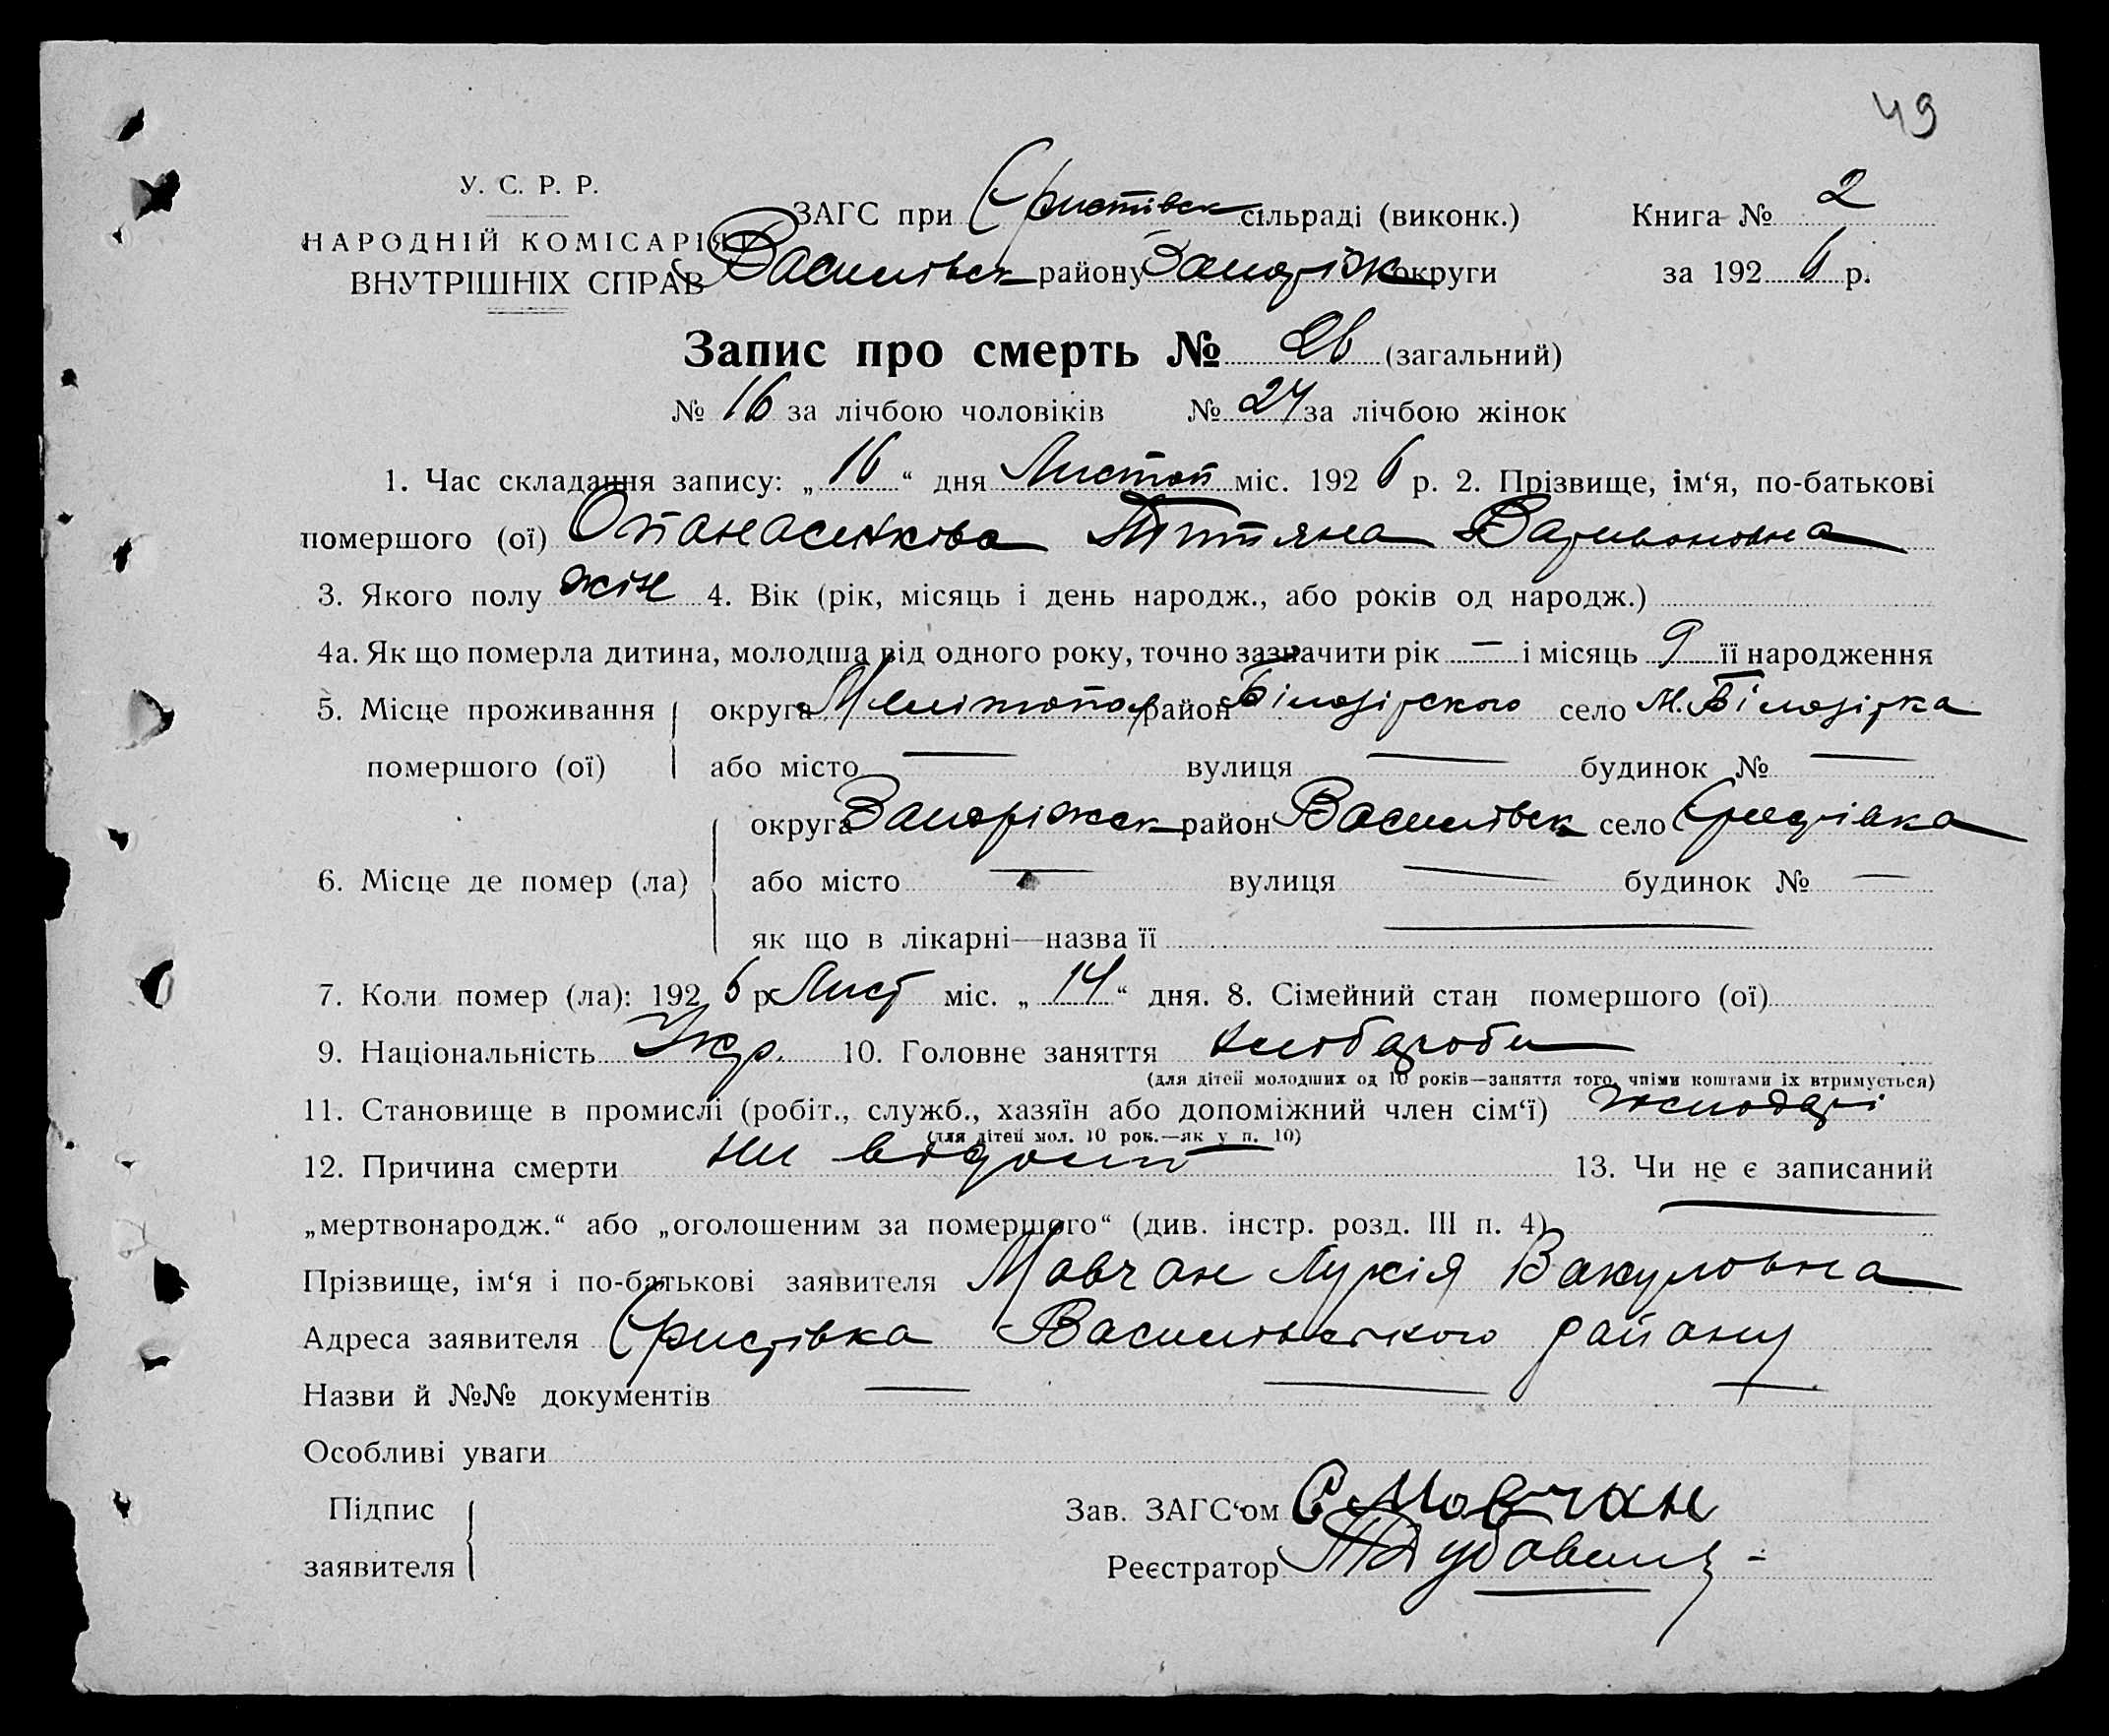 49
У. С. Р. Р.
НАРОДНІЙ КОМІСАРІЯТ
ВНУТРІШНІХ СПРАВ
ЗАГС при Єристівск сільраді (виконк.)
Василівск району Запоріж округи
Книга № 2
за 1926 р.
Запис про смерть № 26 (загальний)
№ 16 за лічбою чоловіків № 24 за лічбою жінок
1. Час складання запису: „16“ дня Листоп міс. 1926 р. 2. Прізвище, ім‘я, по-батькові
помершого (ої) Опанасенкова Тітяна Варивоновна
3. Якого полу жін 4. Вік (рік, місяць і день народж., або років од народж.)
4а. Як що померла дитина, молодша від одного року, точно зазначити рік — і місяць 9 її народження
5. Місце проживання помершого (ої)
округа Мелітопол район Білозірского село М. Білозірка
або місто — вулиця — будинок № —
6. Місце де помер (ла)
округа Запоріжск район Василівск село Єристівка
або місто — вулиця — будинок № —
як що в лікарні—назва її —
7. Коли помер (ла): 1926 р Лист міс. „14“ дня. 8. Сімейний стан помершого (ої)
9. Національність Укр. 10. Головне заняття
(для дітей молодших од 10 років—заняття того, чиїми коштами їх втримується)
11. Становище в промислі (робіт., служб., хазяїн або допоміжний член сім‘ї) господарі
(для дітей мол. 10 рок.—як у п. 10)
12. Причина смерти 13. Чи не є записаний
„мертвонародж.“ або „оголошеним за помершого“ (див. інстр. розд. III п. 4) —
Прізвище, ім‘я і по-батькові заявителя Мовчан Лукія Вакуловна
Адреса заявителя Єристівка Василівського району
Назви й №№ документів — — —
Особливі уваги
Підпис заявителя
Зав. ЗАГС‘ом Є Мовчан
Реєстратор